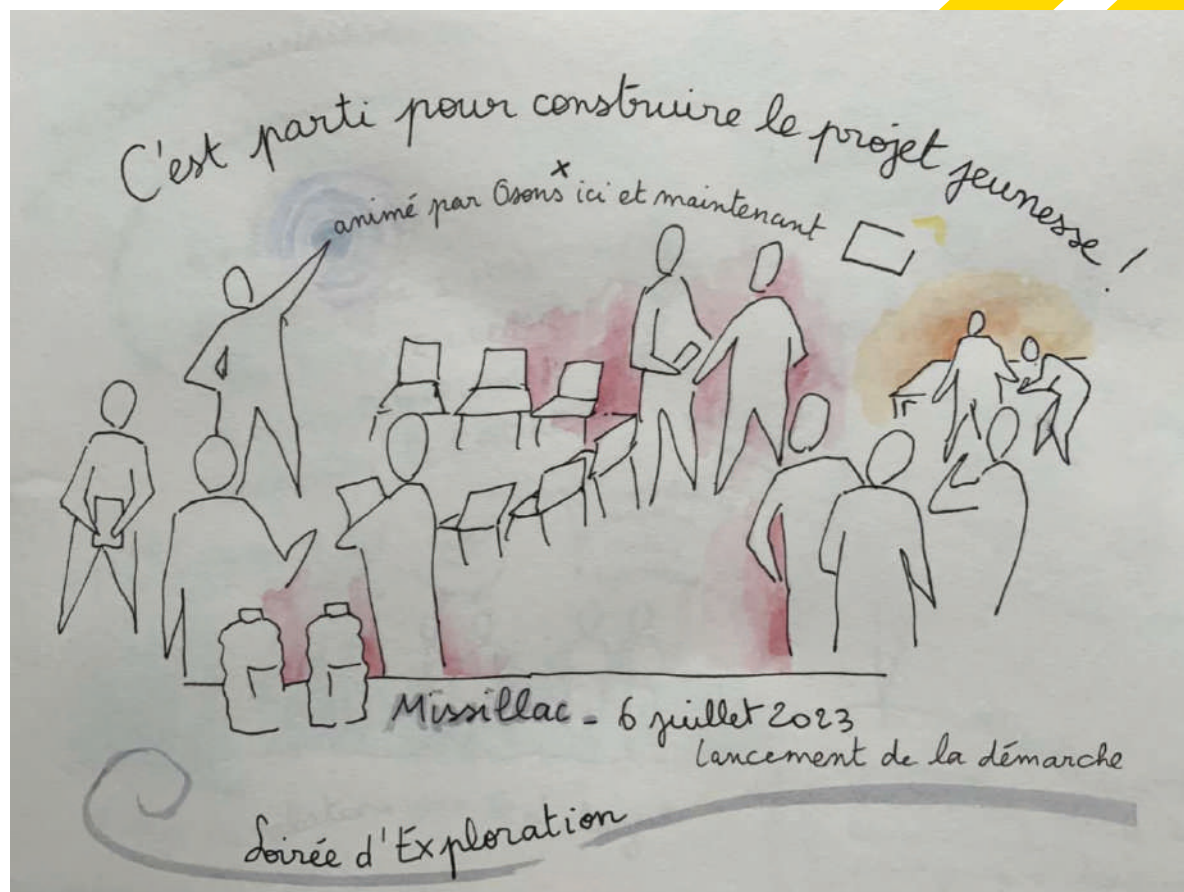 C'est parti pour construire le projet jeunesse !
animé par Osons x ici et maintenant
Missillac - 6 juillet 2023
Lancement de la démarche
Soirée d'Exploration